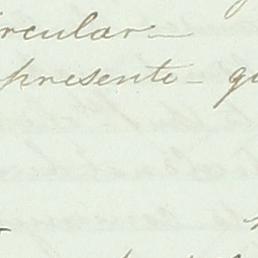 rcular
presente - qu